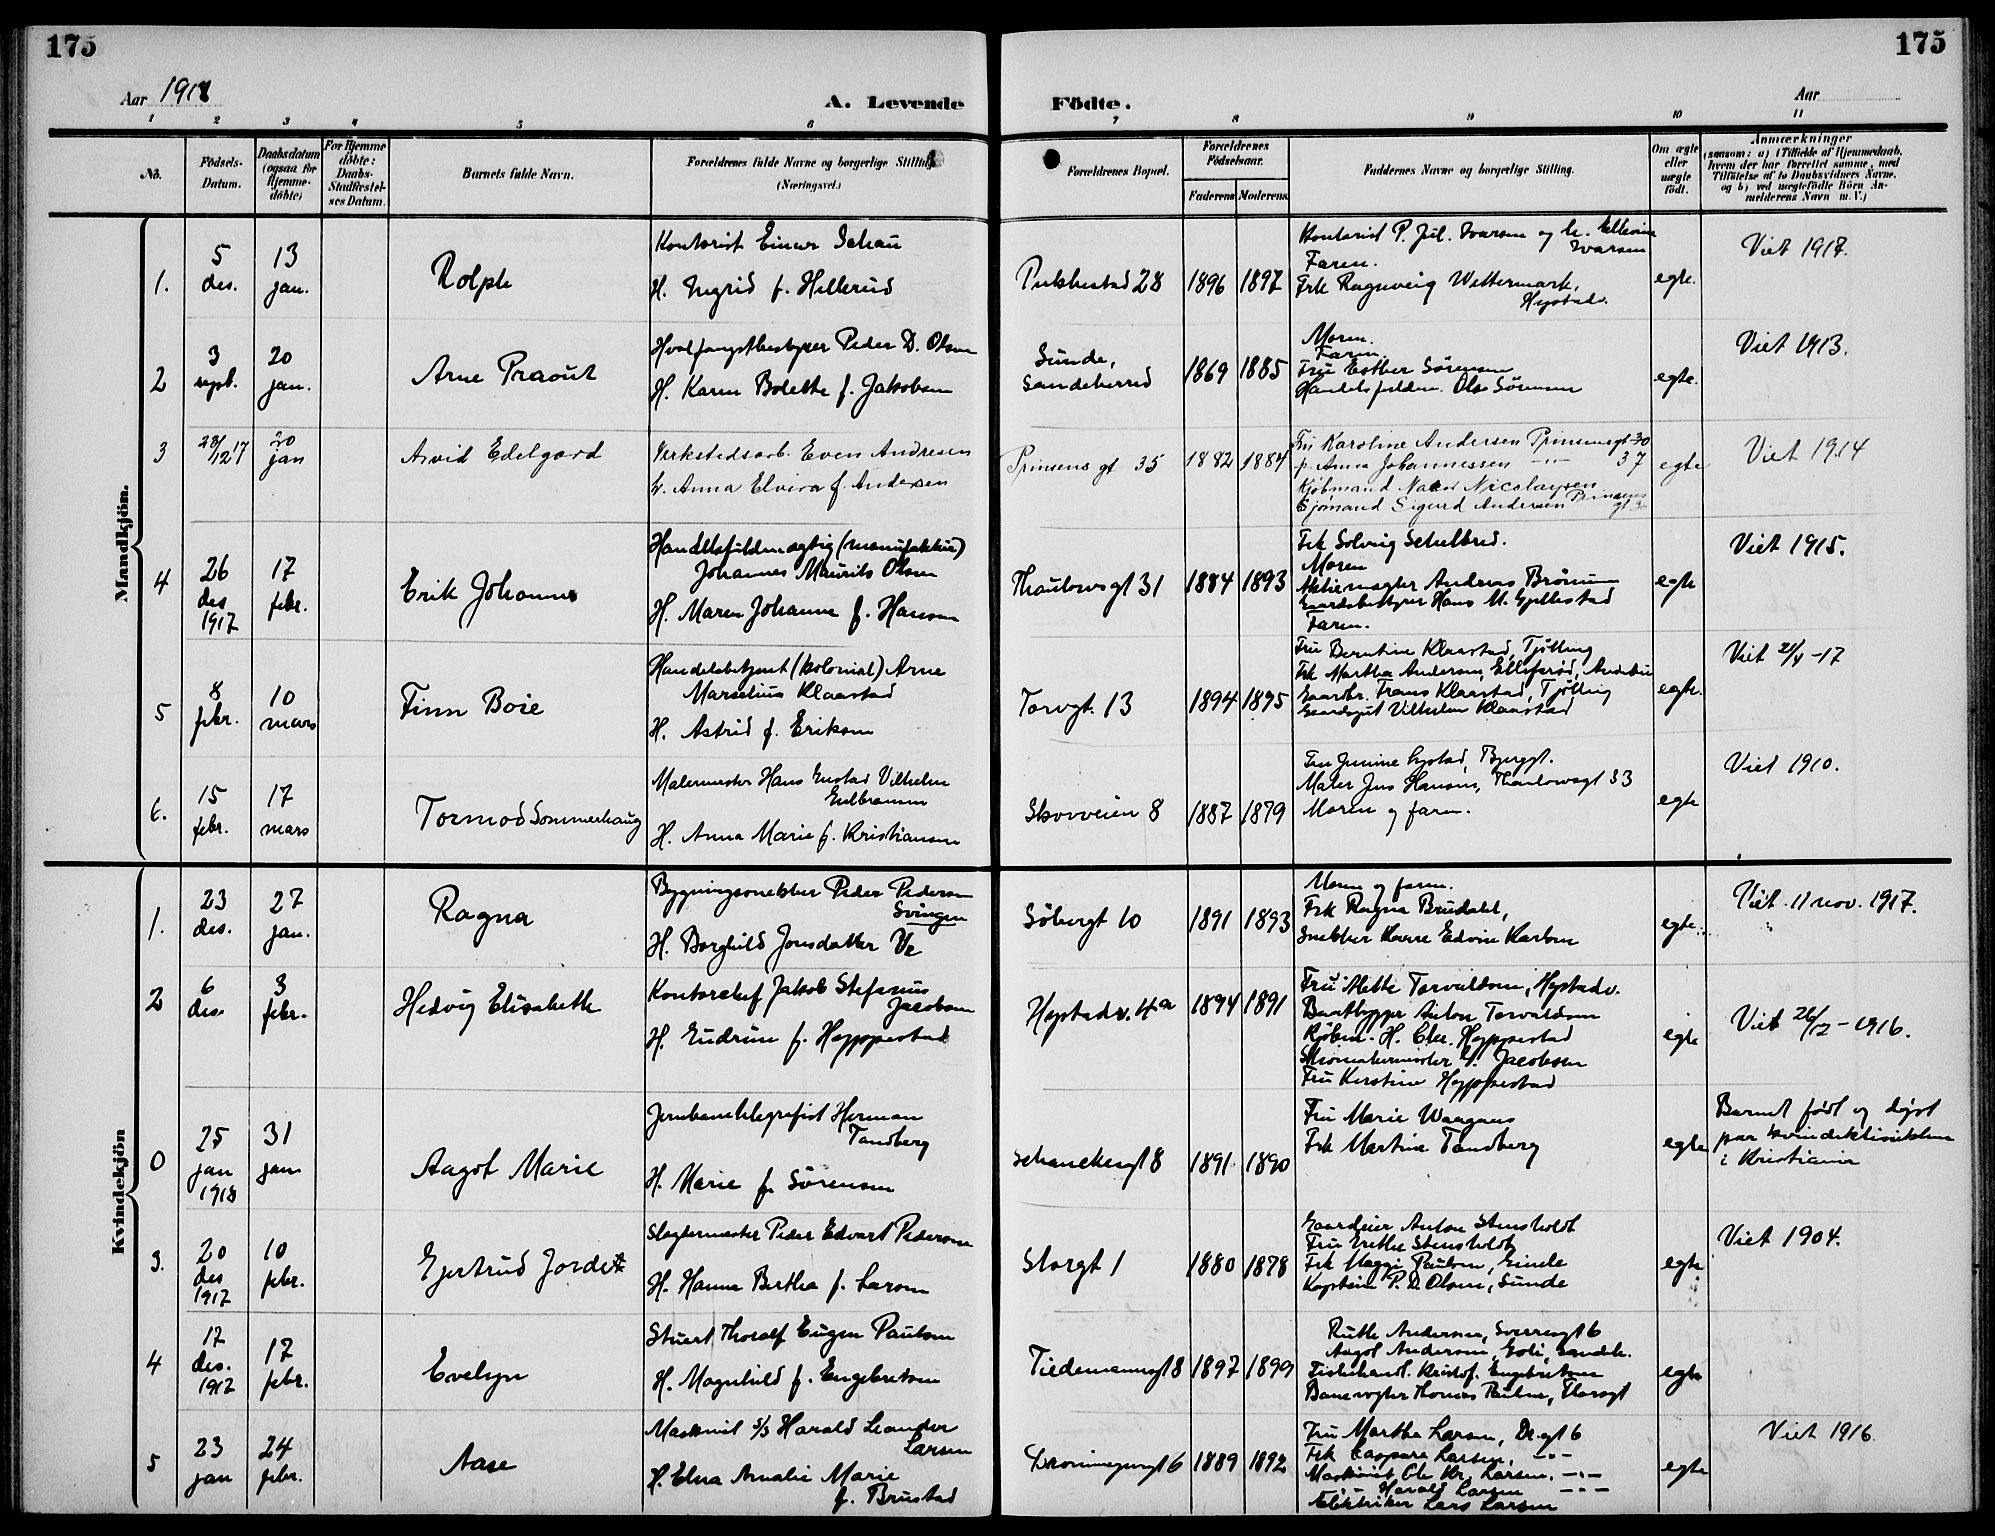 175
175
Aar 1918
A. Levende
Födte.
Aar
1 2 3 4 5 6 7 8 9 10 11
No.
Födsels-Datum.
Daabsdatum (ogsaa for Hjemme-döbte)
For Hjemme döbte: Daabs-Stadfæstel-ses Datum.
Barnets fulde Navn.
Forældrenes fulde Navne og borgerlige Stilling (Næringsvei.)
Forældrenes Bopæl.
Forældrenes Födselsaar.
Faderens
Moderens
Faddernes Navne og borgerlige Stilling.
Om ægte eller uægte födt.
Anmærkninger
(saasom: a) i Tilfælde af Hjemmedaab, hvem der har forrettet samme, med Tilföielse af to Daabsvidners Navne, og b) ved uægtefödte Börn An-melderens Navn m.V.)
Mandkjön.
1.
5 des.
13 jan.
Rolph
Kontorist Einar Schau
H. Ingrid f. Hillerud
Pukkestad 28
1896
1897
Kontorist P. Jul. Ivarsen og h. Ellevine Ivarsen
Faren.
Frk Ragnveig Wettermark, Hystadv.
egte.
Viet 1917.
2
3 sept.
20 jan.
Arne Praout
Hvalfangstbestyrer Peder D. Olsen
H. Karen Bolette f. Jakobsen
Sunde, Sandeherred
1869
1885
Moren.
Faren.
Fru Esther Sörensen
Handelsfuldm. Ole Sörensen
egte.
Viet 1913.
3
28/12 17
20 jan
Arvid Edelgard
Verkstedsarb. Even Andresen
h. Anna Elvira f. Andersen
Prinsens gt 35
1882
1884
Fru Karoline Andersen Prinsensgt 30
p. Anna Johannessen -"- 37
Kjöbmand Nicolaysen
Sjömand Sigurd Andersen Prinsens gt 30
egte
Viet 1914
4
26 des 1917
17 febr.
Erik Johannes
Handelsfuldmægtig (manufaktur)
Johannes Maurits Olsen
H. Maren Johanne f. Hansen
Thaulowsgt 31
1884
1893
Frk Solveig Schelbred.
Moren
Aktiemegler Andreas Brönum
Gaardsbestyrer Hans M. Gjellestad
Faren.
egte
Viet 1915.
5
8 febr.
10 mars
Finn Boie
Handelsbetjent (kolonial) Arne
Marselius Klaastad
H. Astrid f. Eriksen
Torvgt. 13
1894
1895
Fru Berntine Klaastad, Tjölling
Frk Martha Andersen, Ellefsröd, Andebu
Gaardbr. Frans Klaastad, Tjölling
Gaardsgut Vilhelm Klaastad
egte.
Viet 21/4 -17
6.
15 febr.
17 mars
Tormod Sommerhaug
Malermester Hans Gustav Vilhelm
Gulbransen
H. Anna Marie f. Kristiansen
Skovveien 8
1887
1879
Fru Jensine Lystad, Bjergt.
Maler Jens Hansen, Thaulowsgt 33
Moren og faren.
egte
Viet 1910.
Kvindekjön
1.
23 des.
27 jan.
Ragna
Bygningssnekker Peder Pedersen
Svingen
H. Borghild Jonsdatter Ve
Söbergt 10
1891
1893
Moren og faren.
Frk Ragna Brudahl,
Snekker Kaare Edvin Karlsen
egte.
Viet 11 nov. 1917.
2
6 des.
3 febr.
Hedvig Elisabeth
Kontorchef Jakob Stefanus
Jacobsen
H. Gudrun f. Heppestad
Hystadv. 4a
1894
1891
Fru Mette Torvaldsen, Hystadv.
Baatbygger Anton Torvaldsen
Kjöbm. H. Chr. Heppestad
Skomakermester S. Jacobsen
Fru Kirstine Heppestad
egte
Viet 26/12 - 1916.
0
25 jan 1918
31 jan
Aagot Marie
Jernbanetelegrafist Herman
Tandberg
H. Marie f. Sörensen
Schanchesgt 8
1891
1890
Fru Marie Waagaas
Frk Martina Tandberg
egte
Barnet födt og döpt
paa kvindeklinikken
i Kristiania
3.
20 des 1917
10 febr.
Gjertrud Jordet
Slagtermester Peder Edvart Pedersen
H. Hanna Bertha f. Larsen
Storgt 1
1880
1878
Gaardeier Anton Stensholdt
Fru Grethe Stensholdt
Frk Maggi Paulsen, Ginde
Kaptein P. D. Olsen, Sunde
egte
Viet 1904.
4
17 des. 1917
17 febr.
Evelyn
Stuert Thoralf Eugen Paulsen
H. Magnhild f. Engebretsen
Tidemannsgt 8
1897
1899
Ruth Andersen, Sverresgt 6
Aagot Andersen, Goli, Sandeh.
Fiskehandl. Kristof. Engebretsen
Banevogter Thomas Paulsen, Thorsgt
egte
5
23 jan
24 febr.
Aase
Maskinist s/s Harald Leander
Larsen
H. Elna Amalie Marie
f. Brustad
Dronningensgt 6
1889
1892
Fru Martha Larsen, Dr.gt 6
Frk Caspara Larsen, -"-
Maskinist Ole Kr. Larsen, -"-
-"- Harald Larsen -"-
Elektriker Lars Larsen
egte
Viet 1916.